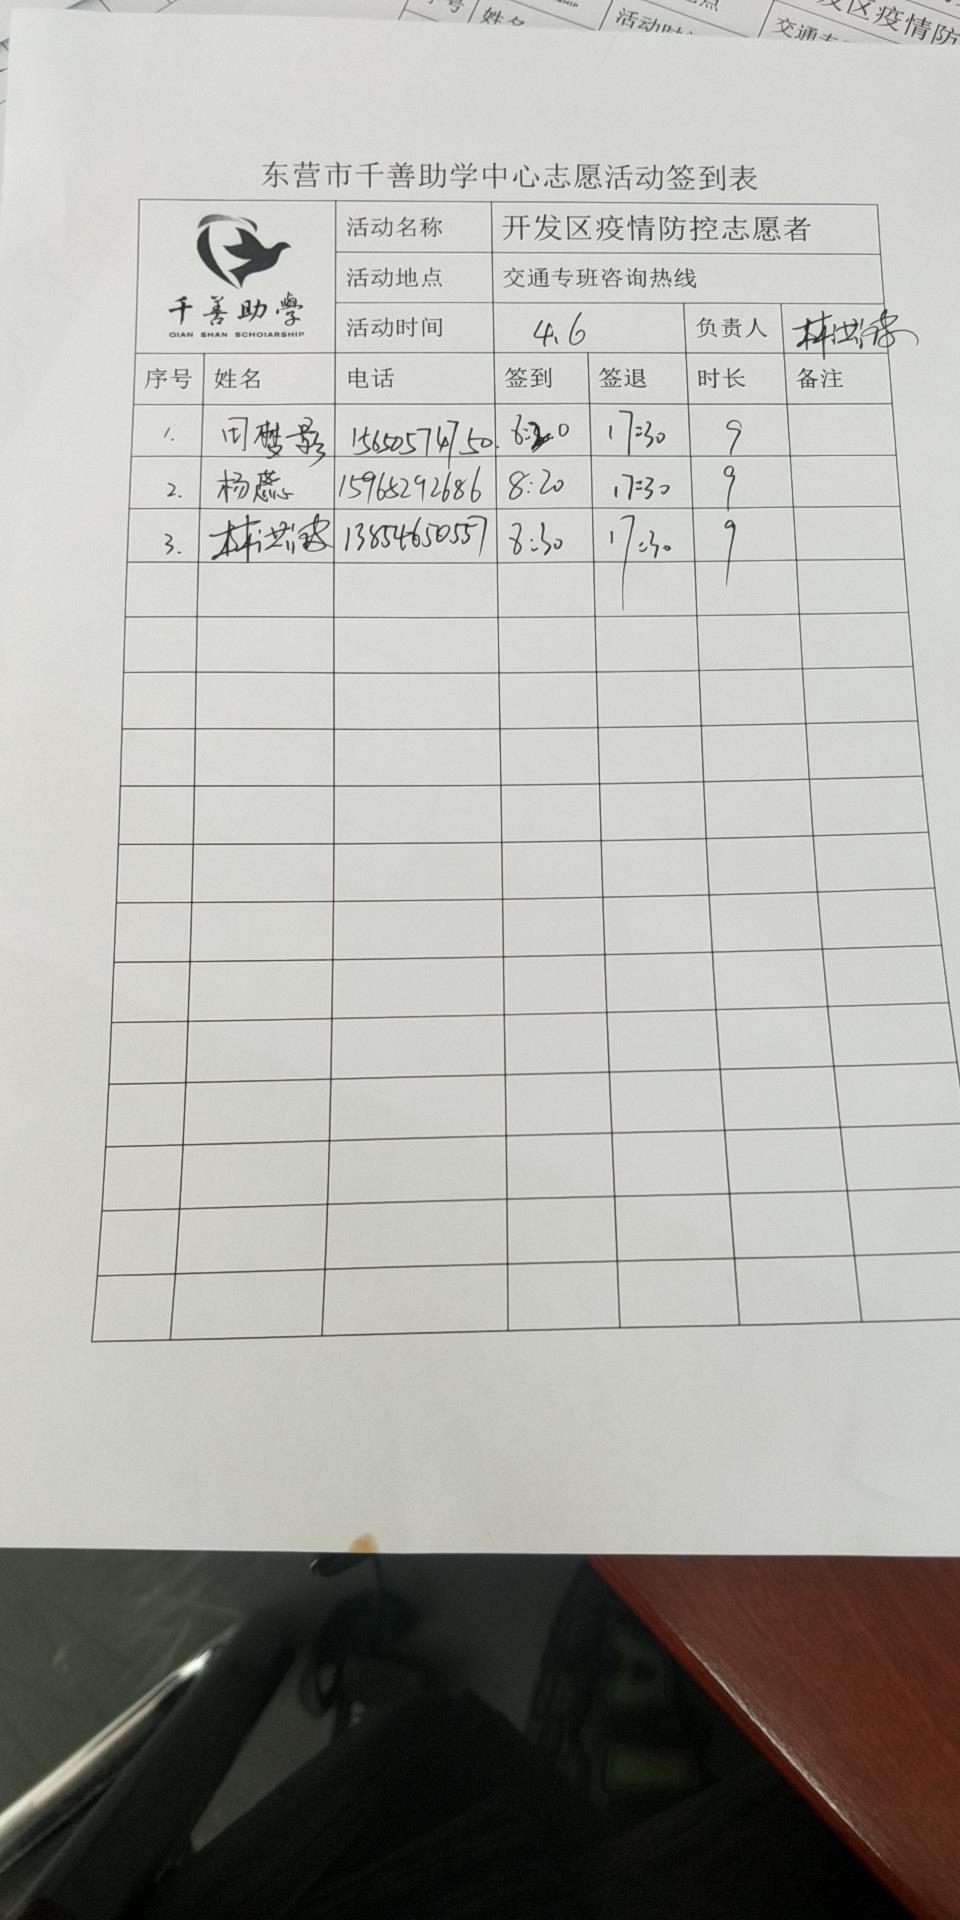 号 姓名 活动时 地点 交通专 发区疫情防
东营市千善助学中心志愿活动签到表
千善助學
QIAN SHAN SCHOIARSHIP
活动名称 开发区疫情防控志愿者
活动地点 交通专班咨询热线
活动时间 4.6 负责人 林洪
序号 姓名 电话 签到 签退 时长 备注
1. 周梦影 15650574750 8:20 17:30 9
2. 杨蕊 15965292686 8:20 17:30 9
3. 林洪 13854650557 8:30 17:30 9